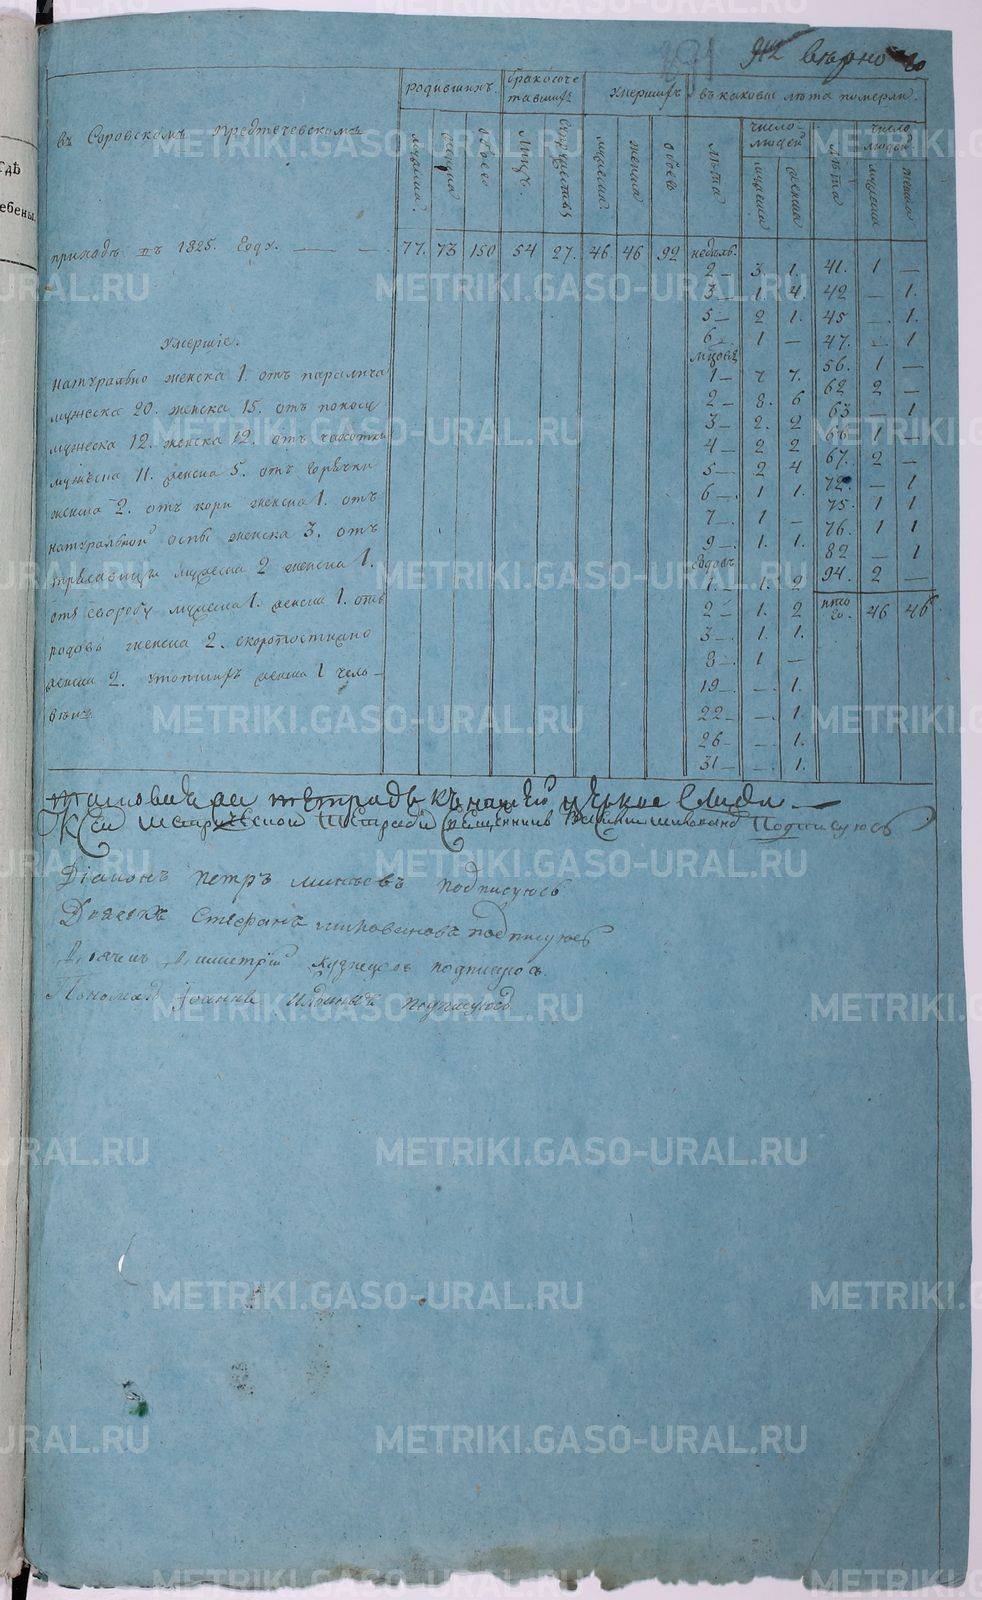 вѣрно
родившихъ
бракосоче
тавшихъ
умершихъ
въ каковые лѣта померли.
въ Соровскомъ Предтечевскомъ
мужеска
женска
обоего
Лицъ
мужеска
женска
обоего
лѣта
число
людей
мужеска
женска
лѣта
число
людей
мужеска
женска
приходѣ въ 1825. Году. — — 77. 73 150 54 27. 46. 46 92
недѣль.
2 — 3. 1.
3 — 1. 4
5 — 2 1.
6 — 1 —
1 — 7 7.
2 — 8. 6
3 — 2. 2
4 — 2 2
5 — 2 4
6 — 1 1.
7 — 1 —
9 — 1. 1.
Годовъ
1 — 1. 2
2 — 1. 2
3 — 1. 1.
8 — 1 —
19 — — 1.
22 — — 1.
26 — — 1.
31 — — 1.
41. 1 —
42 — 1.
45 — 1.
47. — 1
56. 1 —
62 2 —
63 — 1
66 1 —
67. 2 —
72. — 1
75. 1 1
76. 1 1
82 — 1
94. 2 —
итого. 46 46
Умершіе.
натурально женска 1. отъ паралича
мужеска 20. женска 15. отъ поносу
мужеска 12. женска 12. отъ чахотки
мужеска 11. женска 5. отъ горячки
женска 2. отъ кори женска 1. отъ
натуральной оспы женска 3. отъ
мужеска 2 женска 1.
отъ мужеска 1. женска 1. отъ
родовъ женска 2. скоропостижно
женска 2. утопшихъ женска 1 чело-
вѣкъ
тетрадь къ нашей церкве
К сей метрической тетради священникъ Подписуюсь
Діаконъ Петръ подписуюсь
Дьячекъ Стефанъ подписуюсь
Дьячекъ Димитрій Кузнецовъ подписуюсь
Пономарь Іоаннъ подписуюсь
METRIKI.GASO-URAL.RU